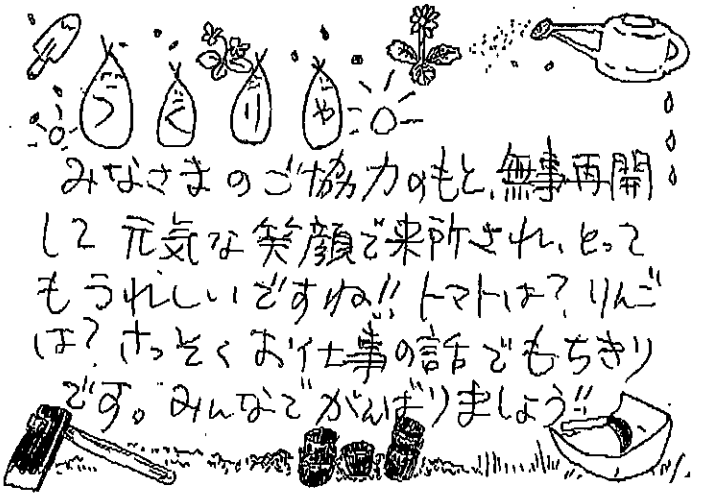 つくりや
みなさまのご協力のもと、無事再開
して元気な笑顔で来所され、とって
もうれしいですね!! トマトは? りんご
は? さっそくお仕事の話でもちきり
です。みんなでがんばりましょう!!